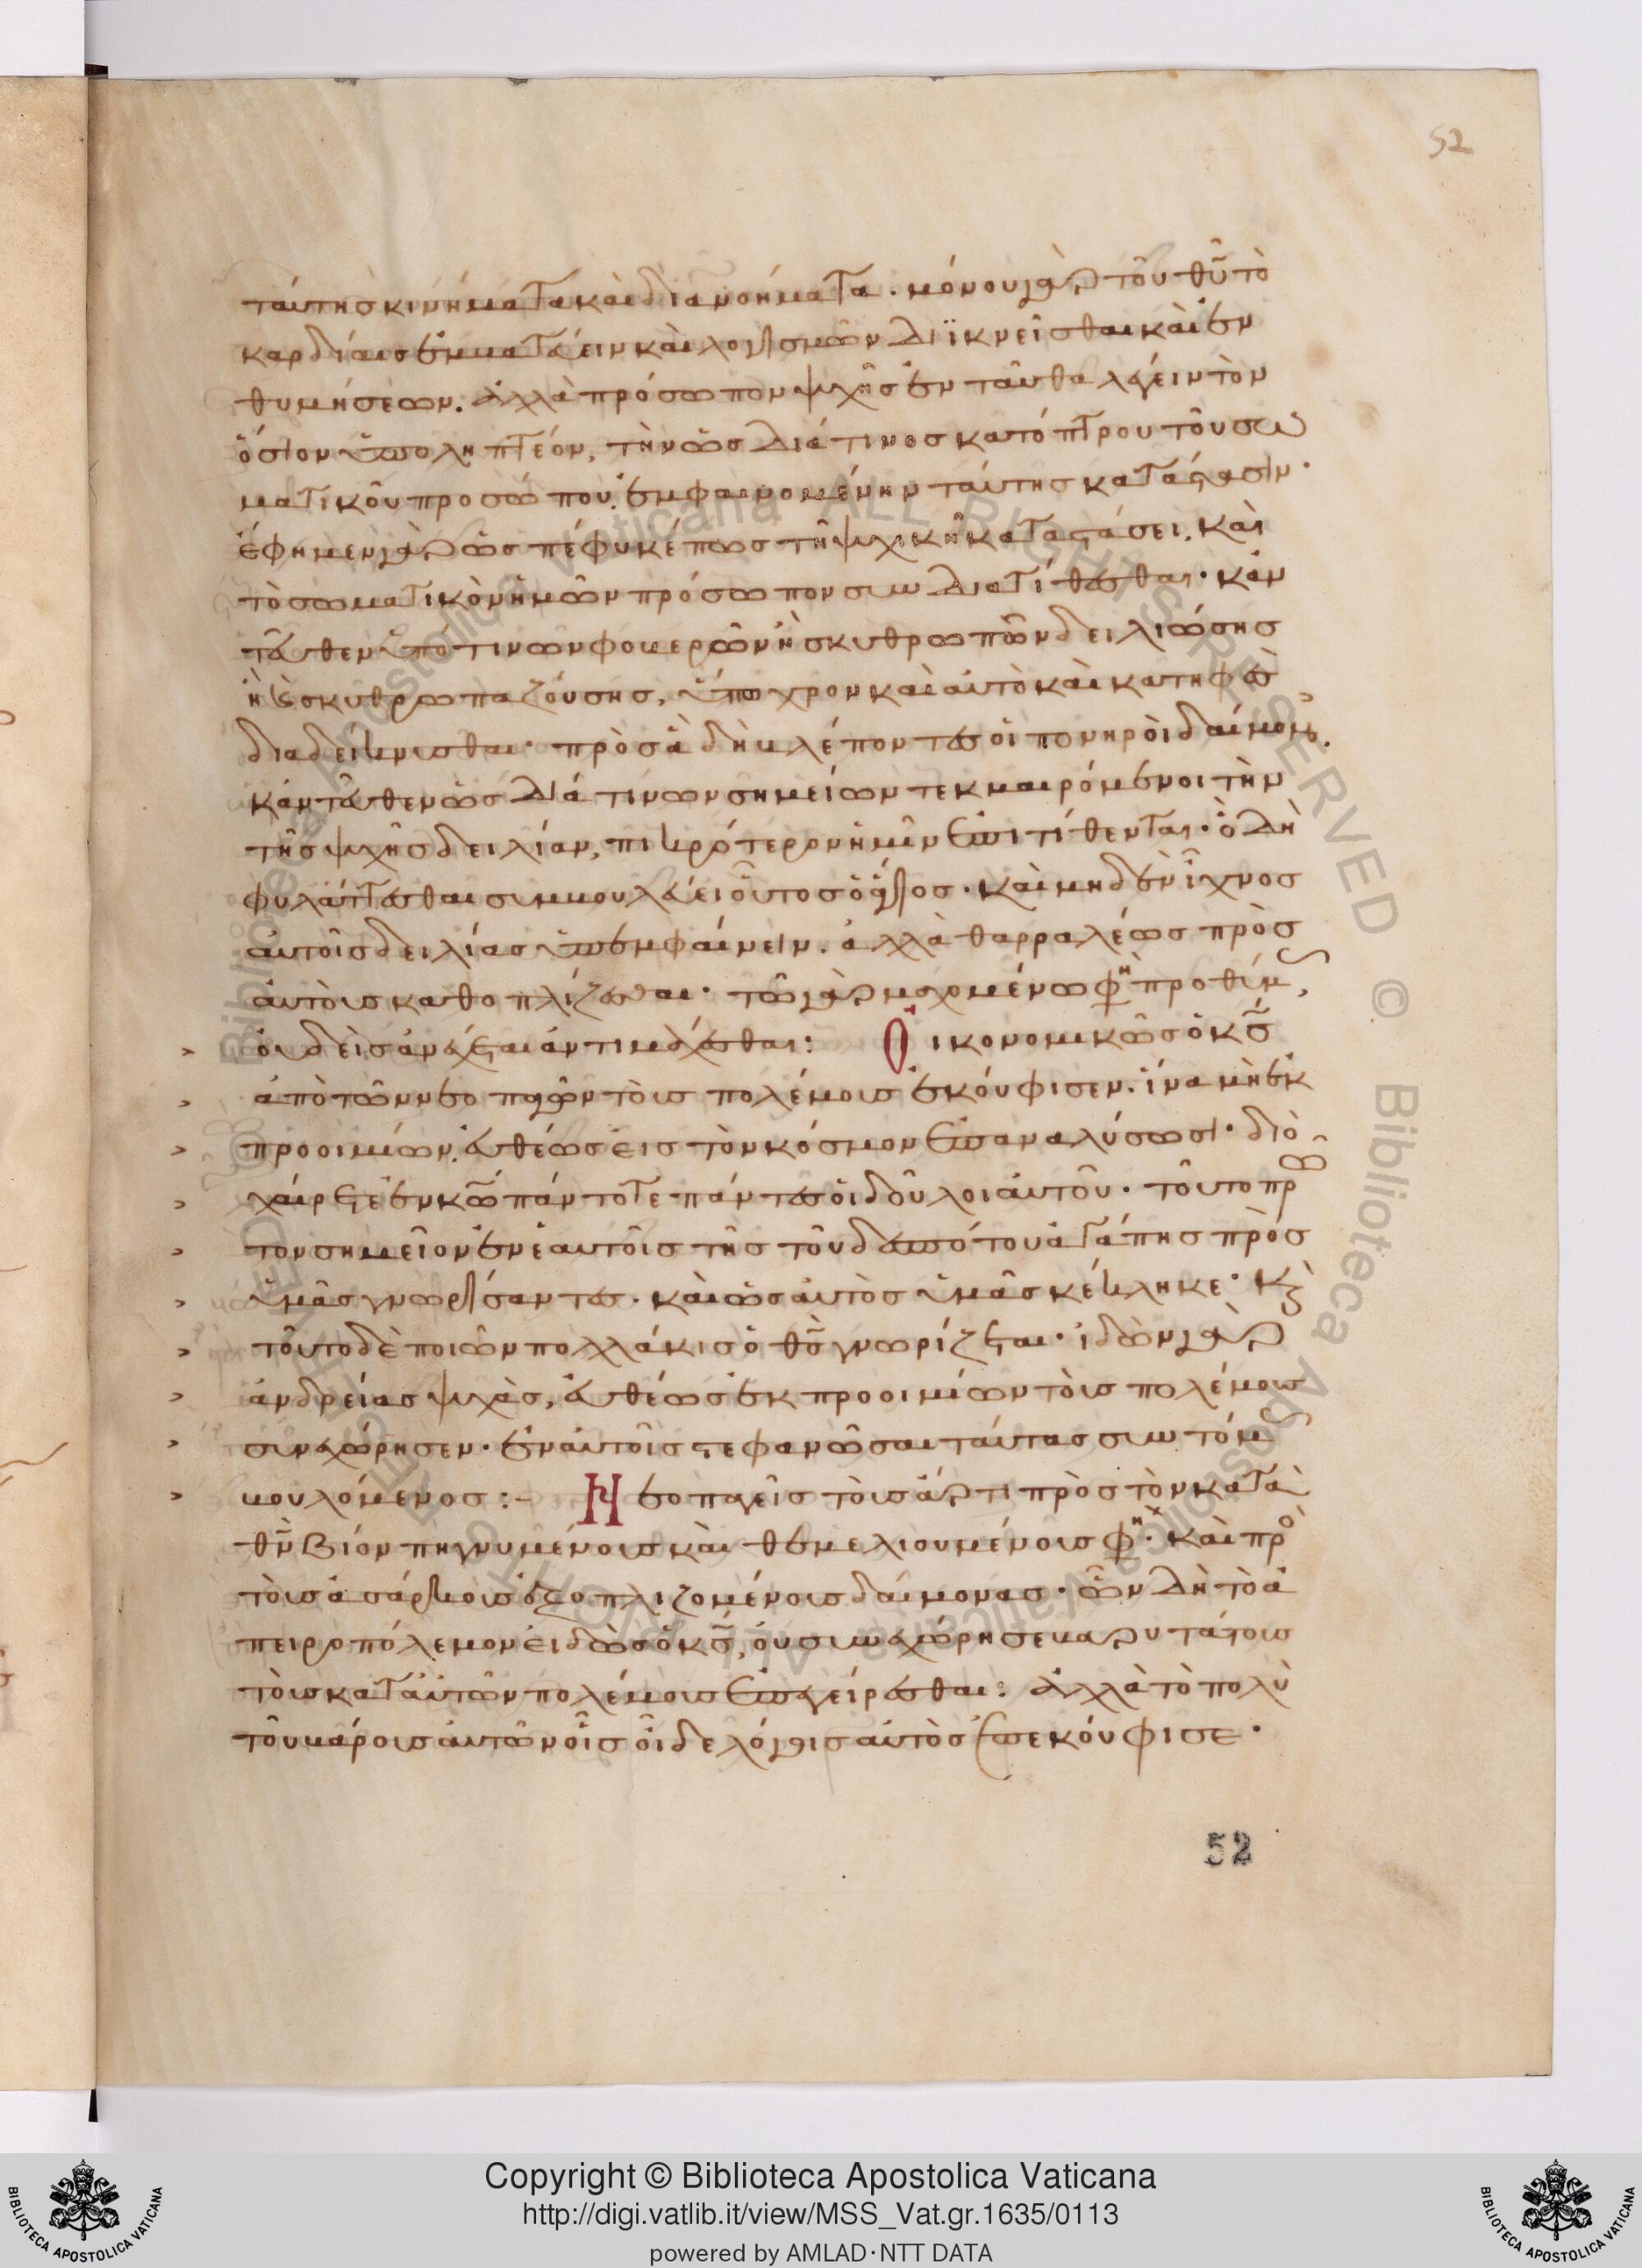 52
ταύτης κινήματα καὶ διανοήματα· μόνου γὰρ τοῦ θυ τὸ
καρδίαις ἐμβατεύειν καὶ λογισμῶν διϊκνεῖσθαι καὶ ἐν
θυμήσεων. ἀλλὰ πρόσωπον ψυχῆς ἐνταῦθα λέγειν τὸν
ὅσιον ὑποληπτέον, τὴν ὡς διά τινος κατόπτρου τοῦ σω
ματικοῦ προσώπου ἐμφαινομένην ταύτης κατάστασιν·
ἔφημεν γὰρ ὡς πέφυκέ πως τῆ ψυχικῆ καταστάσει. καὶ
τὸ σωματικὸν ἡμῶν πρόσωπον συνδιατίθεσθαι· κἀν
τεῦθεν ὑπό τινων φοβερῶν ἢ σκυθρωπῶν δειλιώσης
ἢ σκυθρωπαζούσης, ὕπωχρον καὶ αὐτὸ καὶ κατηφὲς
διαδείκνυσθαι· πρὸς ἃ δὴ βλέποντες οἱ πονηροὶ δαίμονες.
κἀντεῦθεν ὡς διά τινων σημείων τεκμαιρόμενοι τὴν
τῆς ψυχῆς δειλίαν, πικρότερον ἡμῖν ἐπιτίθενται· ὃ δὴ
φυλάττεσθαι συμβουλεύει οὗτος ὁ ἅγιος· καὶ μηδὲν ἴχνος
αὐτοῖς δειλίας ὑπεμφαίνειν. ἀλλὰ θαρραλέως πρὸς
αὐτοὺς καθοπλίζεσθαι· τῶ γὰρ μαχομένω φη προθύμως,
οὐδεὶς ἀνέχεται ἀντιμάχεσθαι: Οἰκονομικῶς ὁ κς
ἀπὸ τῶν νεοπαγῶν τοὺς πολέμους ἐκούφισεν. ἵνα μὴ ἐκ
προοιμίων εὐθέως εἰς τὸν κόσμον ἐπαναλύσωσι· διὸ
χαίρετε ἐν κω πάντοτε πάντες οἱ δοῦλοι αὐτοῦ· τοῦτο πρῶ
τον σημεῖον ἐν ἑαυτοῖς τῆς τοῦ δεσπότου ἀγάπης πρὸς
ὑμᾶς γνωρίσαντες. καὶ ὡς αὐτὸς ὑμᾶς κέκληκε· καὶ
τοῦτο δὲ ποιῶν πολλάκις ὁ θς γνωρίζεται· ἰδὼν γὰρ
ἀνδρείας ψυχὰς, εὐθέως ἐκ προοιμίων τοὺς πολέμους
συνεχώρησεν· ἐν αὐτοῖς στεφανῶσαι ταύτας συντόμως
βουλόμενος :– Νεοπαγεῖς τοὺς ἄρτι πρὸς τὸν κατὰ
θν βίον πηγνυμένους καὶ θεμελιουμένους φη· καὶ πρὸ
τοὺς ἀσάρκους ἐξοπλιζομένους δαίμονας· ὧν δὴ τὸ ἀ
πειροπόλεμον εἰδὼς ὁ κς, οὐ συνεχώρησε βαρυτάτους
τοὺς κατ' αὐτῶν πολέμους ἐπεγείρεσθαι: ἀλλὰ τὸ πολὺ
τοῦ βάρους αὐτῶν οἷς οἶδε λόγοις αὐτὸς ἐπεκούφισε·
52
Copyright © Biblioteca Apostolica Vaticana
http://digi.vatlib.it/view/MSS_Vat.gr.1635/0113
powered by AMLAD·NTT DATA
BIBLIOTECA APOSTOLICA VATICANA
BIBLIOTECA APOSTOLICA VATICANA